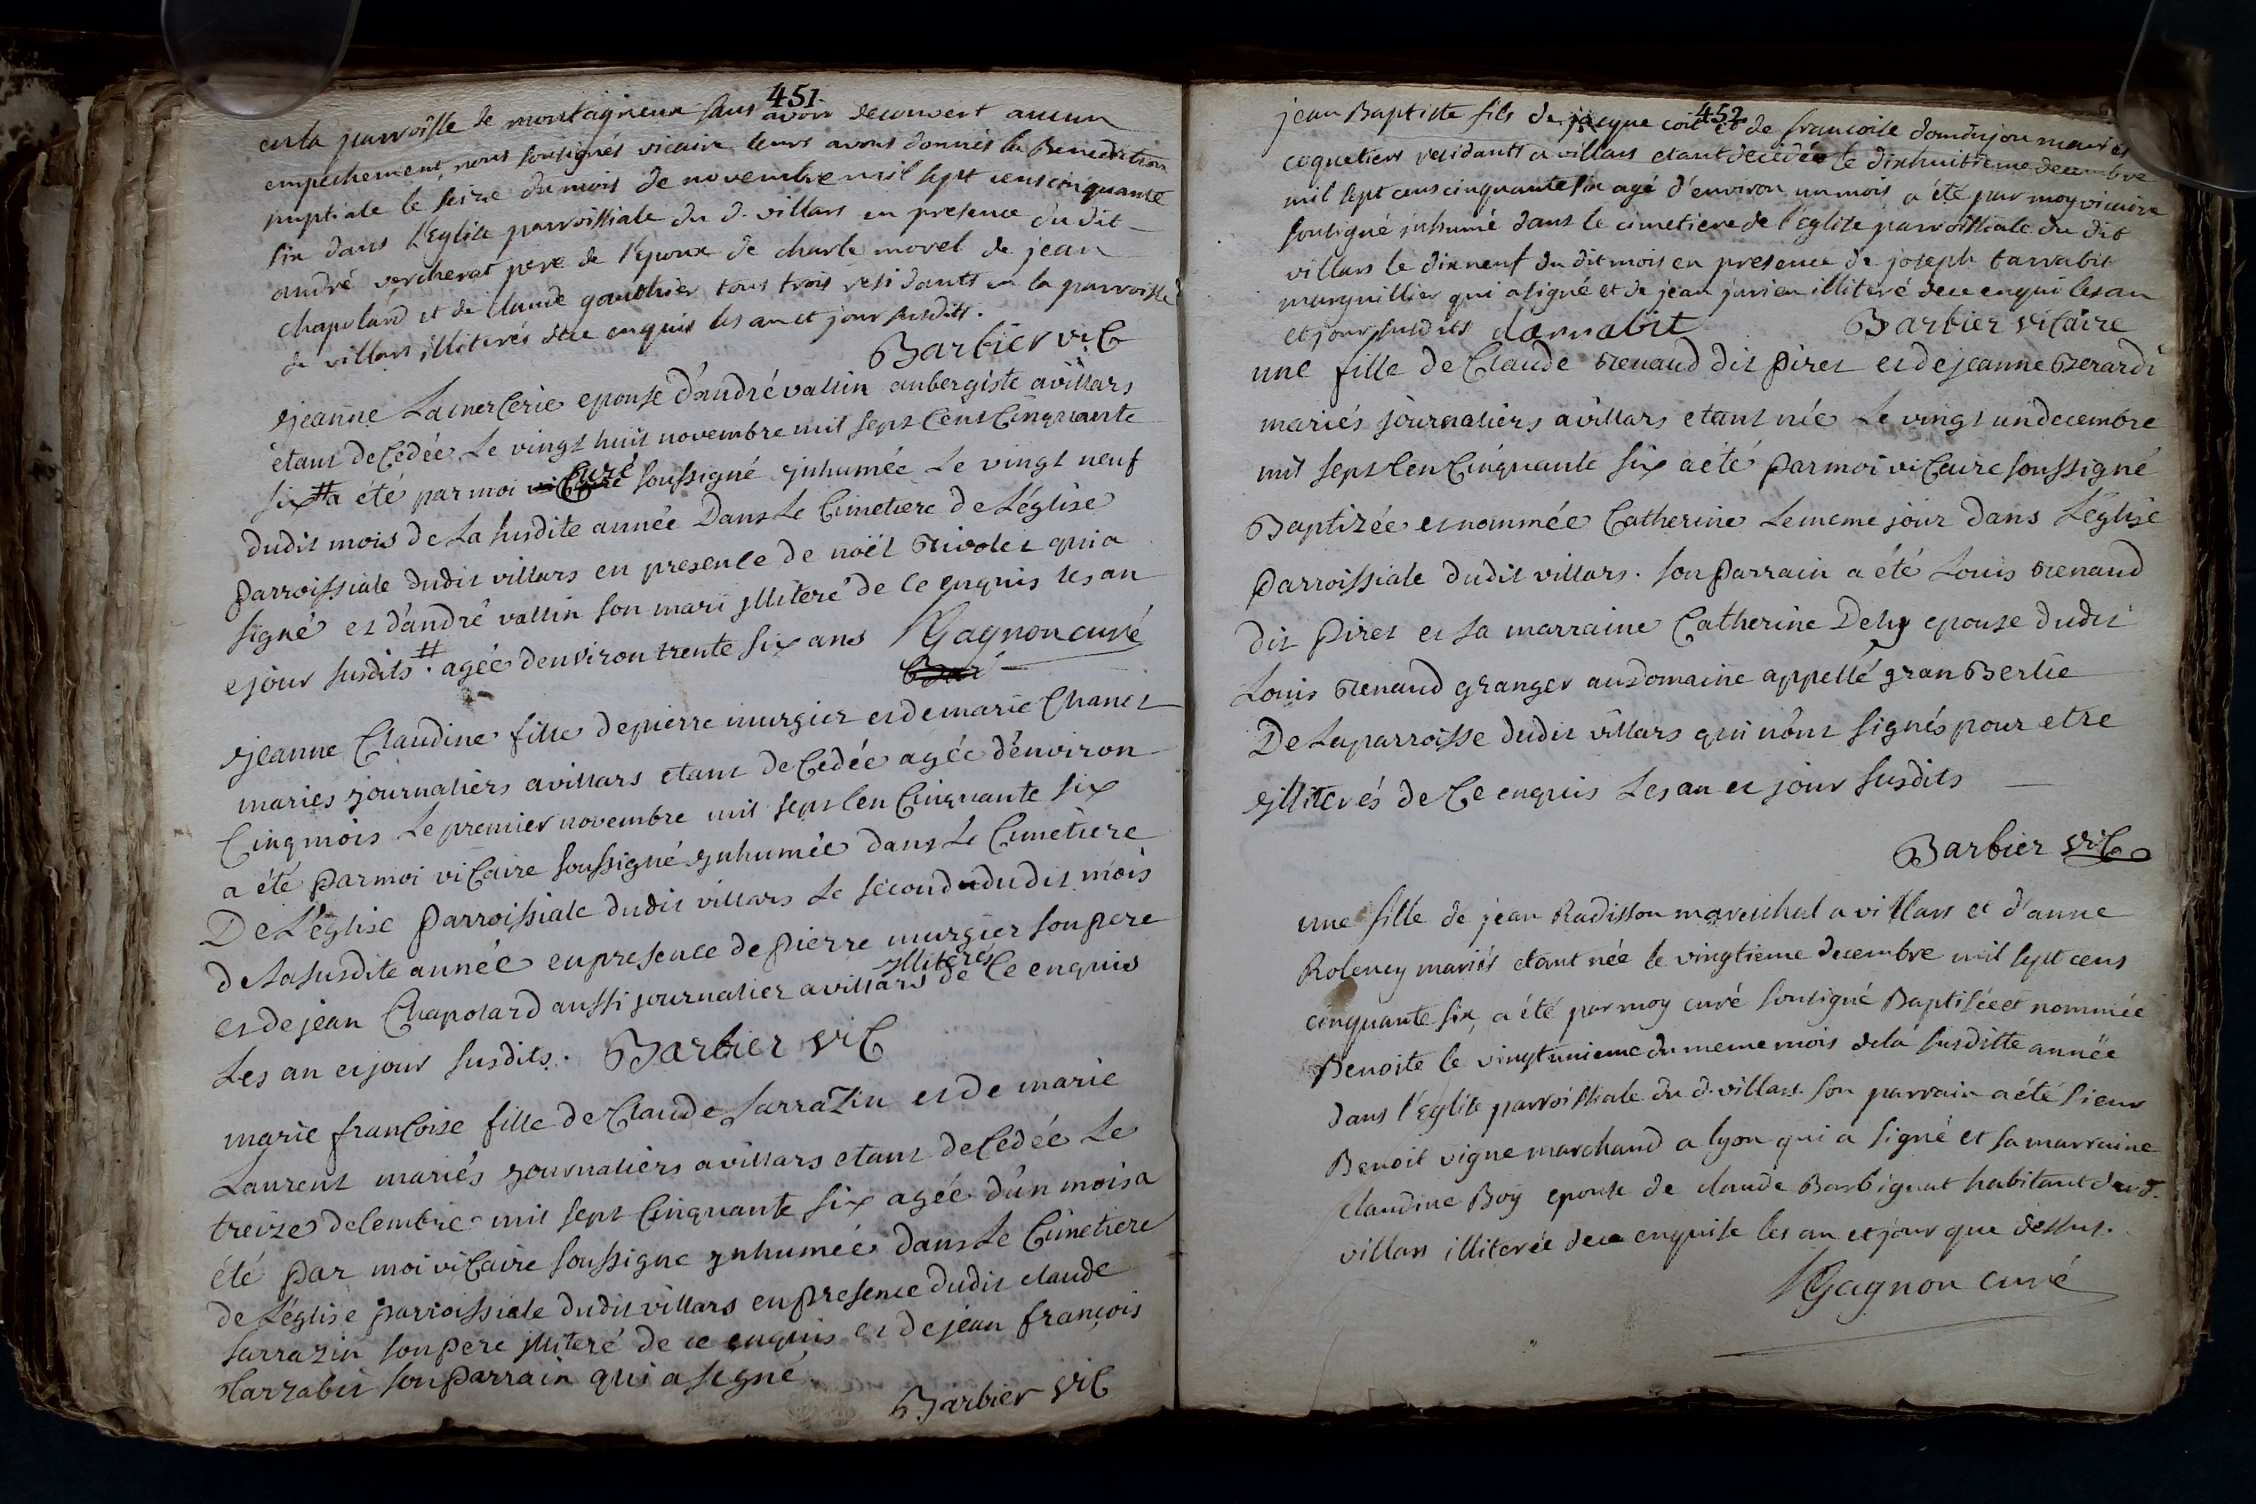 451
en la parroisse de montagneux sans avoir decouvert aucun
empechement, nous sousignés vicaire leurs avons donnés la Benediction
nuptiale le seize du mois de novembre mil sept cens cinquante
six dans l'Eglise parroissiale du d. villars en presence du dit
andré vercherat pere de l'epoux de charle morel de jean
chapolard et de claude gauthier tous trois residants en la parroisse
de villars illiterés de ce enquis les an et jour susdits.
Barbier vic
jeanne Lamercerie epouse d'andré vallin aubergiste a villars
étant decedée le vingt huit novembre mil sept cent Cinquante
six # a été par moi curé soussigné ynhumée le vingt neuf
dudit mois de la susdite année Dans le Cimetiere de L'église
parroissiale dudit villars en presence de noël Rivolet qui a
signé et d'andré vallin son mari jlliteré de ce enquis les an
ejour susdits. # agée denviron trente six ans Gagnon curé
jeanne Claudine fille de pierre murgier et de marie Chanel
maries journaliers a villars etant decedée agée d'environ
Cinq mois le premier novembre mil sept cen Cinquante six
a été par moi vicaire soussigné ynhumée dans le Cimetiere
De L'église parroissiale dudit villars le second dudit mois
de la susdite année en presence de pierre murgier son pere
et de jean Chapolard aussi journalier a villars jlliterés de Ce enquis
Les an et jour susdits. Barbier vic
marie francoise fille de Claude sarrazin et de marie
Laurent mariés journaliers a villars etant decedée Le
treize decembre mil sept Cinquante six agée d'un mois a
été par moi vicaire soussigne ynhumée dans le Cimetiere
de L'église parroissiale dudit villars en presence dudit claude
sarrazin son pere jlliteré de ce enquis et de jean françois
Tarrabit son parrain qui a signé
Barbier vic
452
jean Baptiste fils de jacque coit et de francoise dondujon mariés
coquetiers residants a villars etant decédé le dixhuitieme decembre
mil sept cens cinquante six agé d'environ un mois a été par moy vicaire
sousigné inhumé dans le cimetiere de l'eglise parroissiale du dit
villars le dixneuf du dit mois en presence de joseph tarrabit
marguillier qui a signé et de jean jurien illiteré de ce enqui les an
et jour susdits darrabit Barbier vicaire
une fille de Claude Renaud dit piret et de jeanne Berardi
mariés journaliers a villars etant née Le vingt un decembre
mil sept Cen Cinquante six a été par moi vicaire soussigné
Baptizée et nommée Catherine Le meme jour dans L'église
parroissiale dudit villars. son parrain a été Louis Renaud
dit piret et sa marraine Catherine Dely epouse dudit
Louis Renaud granger au domaine appellé gran Berlie
De La parroisse dudit villars qui n'ont signés pour etre
jlliterés de Ce enquis Les an et jour susdits
Barbier vic
une fille de jean Radisson mareschal a villars et d'anne
Roleney mariés etant née le vingtieme decembre mil sept cens
cinquante six, a été par moy curé sousigné Baptisée et nommée
Benoite le vingtunieme du meme mois de la susditte année
dans l'Eglise parroissiale du d. villars. son parrain a été sieur
Benoit vigne marchand a lyon qui a signé et sa marraine
claudine Boy epouse de claude Barbignat habitant du d.
villars illiterée de ce enquise les an et jour que dessus.
Gagnon curé